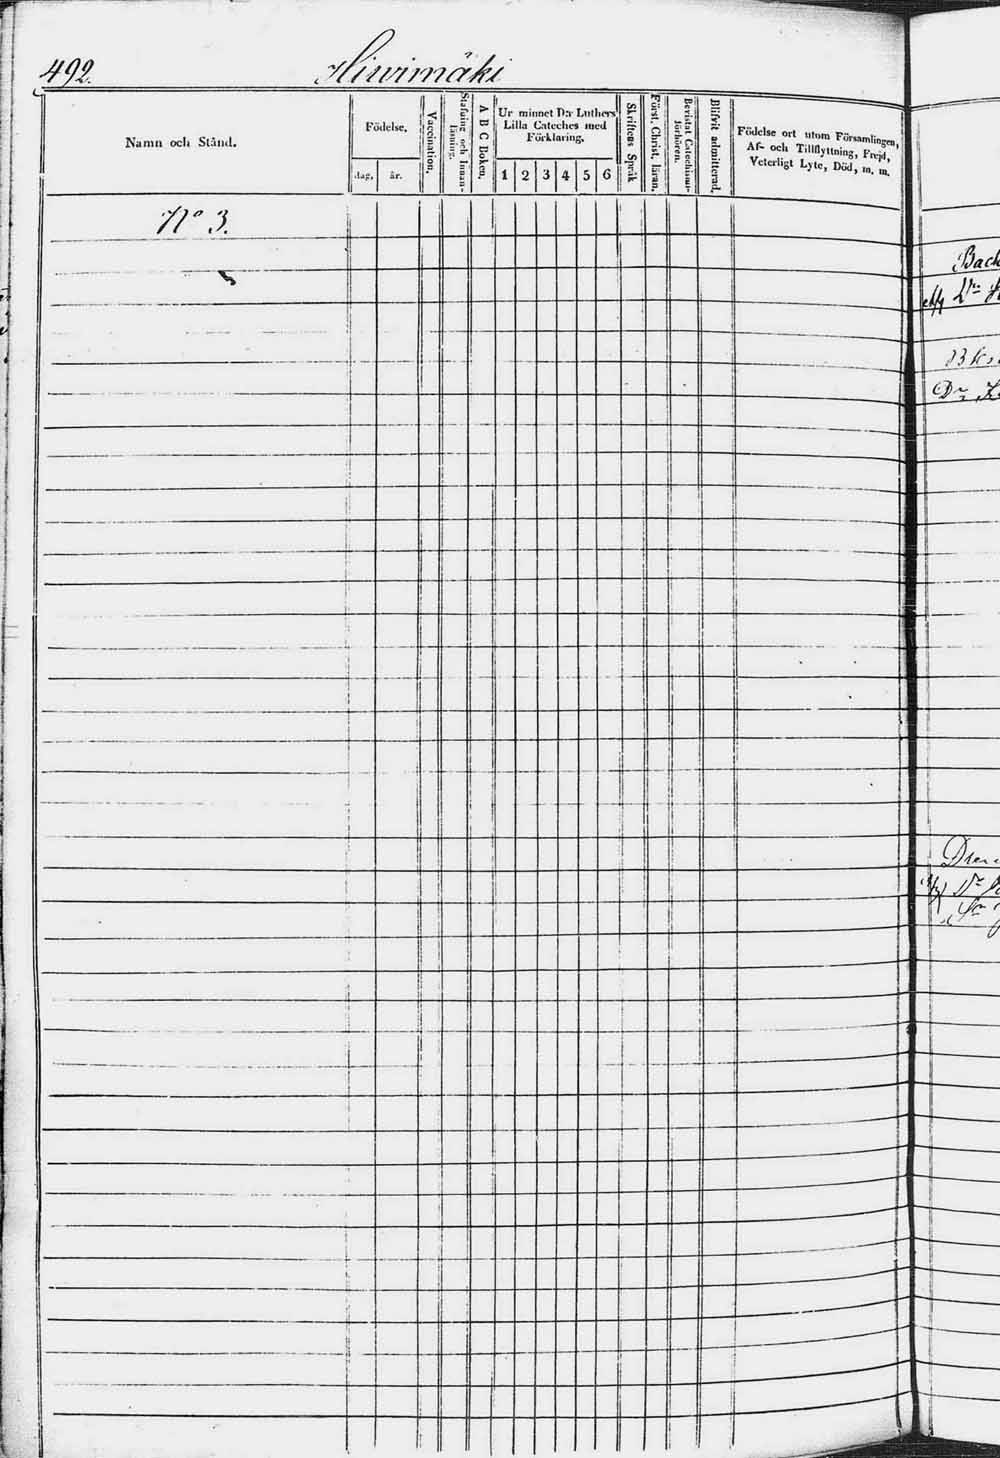 492. Hiirimäki
Namn och Stånd.
Födelse,
dag, år.
Vaccination,
Stafning och Innan-
läsning.
A B C Boken,
Ur minnet D:r Luthers
Lilla Cateches med
Förklaring.
1 2 3 4 5 6
Skriftens Språk
Först. Christ, läran,
Bevistat Catechismi-
förhören.
Blifvit admitterad,
Födelse ort utom Församlingen,
Af- och Tillflyttning, Frejd,
Veterligt Lyte, Död, m. m.
No 3.
Back